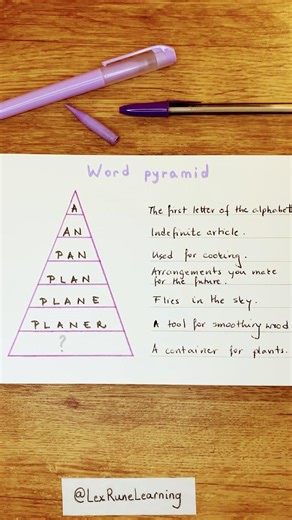 Word pyramid
A The first letter of the alphabet
AN Indefinite article.
PAN Used for cooking.
PLAN Arrangements you make
for the future.
PLANE Flies in the sky.
PLANER A tool for smoothing wood
? A container for plants.
@LexRuneLearning